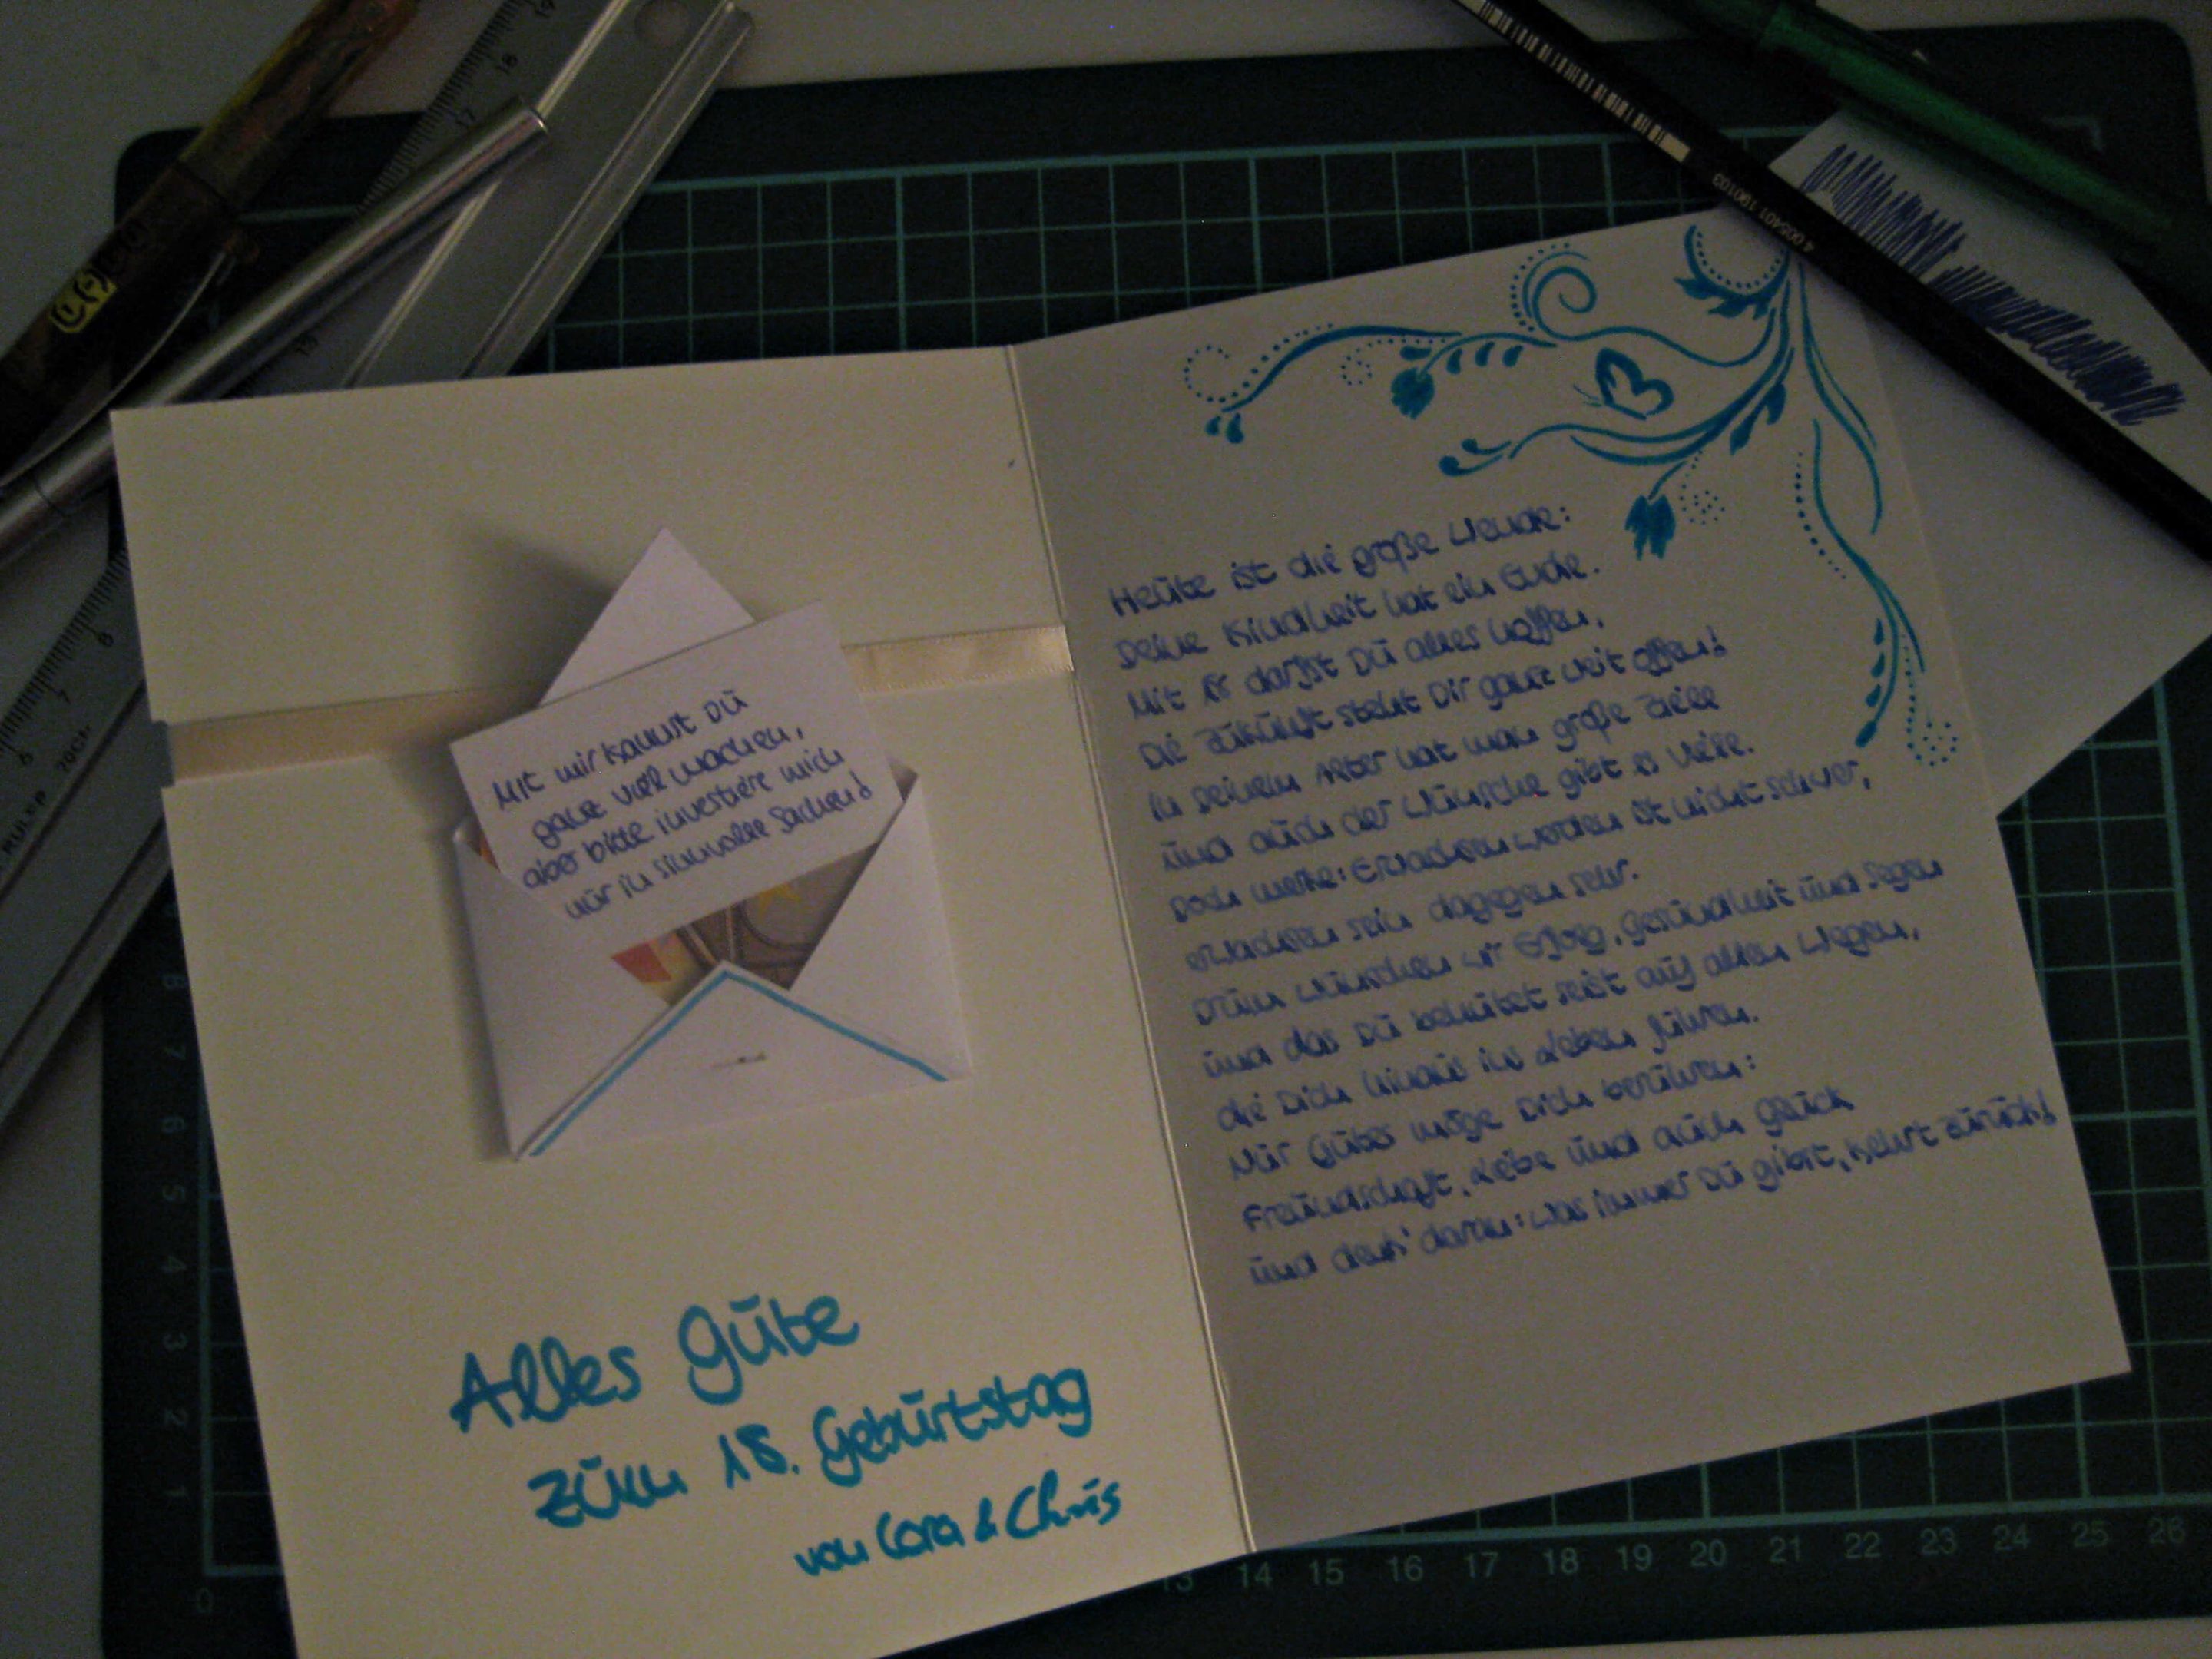 Mit mir kannst Dū
ganz viel machen,
aber bitte investiere mich
nūr in sinnvolle Sachen!
Alles Gūte
zūm 18. Gebūrtstag
von Cora & Chris
Heūte ist die große Wende:
Deine Kindheit hat ein Ende.
Mit 18 darfst Dū alles hoffen,
Die Zūkūnft steht Dir ganz weit offen!
In Deinem Alter hat man große Ziele
ūnd aūch der Wünsche gibt es viele.
Doch merke: Erwachsen werden ist nicht schwer,
erwachsen sein dagegen sehr.
Drūm wünschen wir Erfolg, Gesūndheit ūnd Segen
ūnd das Dū behütet seist aūf allen Wegen,
die Dich hinaūs ins Leben führen.
Nūr Gūtes möge Dich berühren:
Freūndschaft, Liebe ūnd aūch Glück
ūnd denk' daran: was immer Dū gibst, kehrt zūrück!
4 005401 190103
19
18
17
15
8
7
6
RULER
8
7
6
5
4
3
2
1
0
13 14 15 16 17 18 19 20 21 22 23 24 25 26